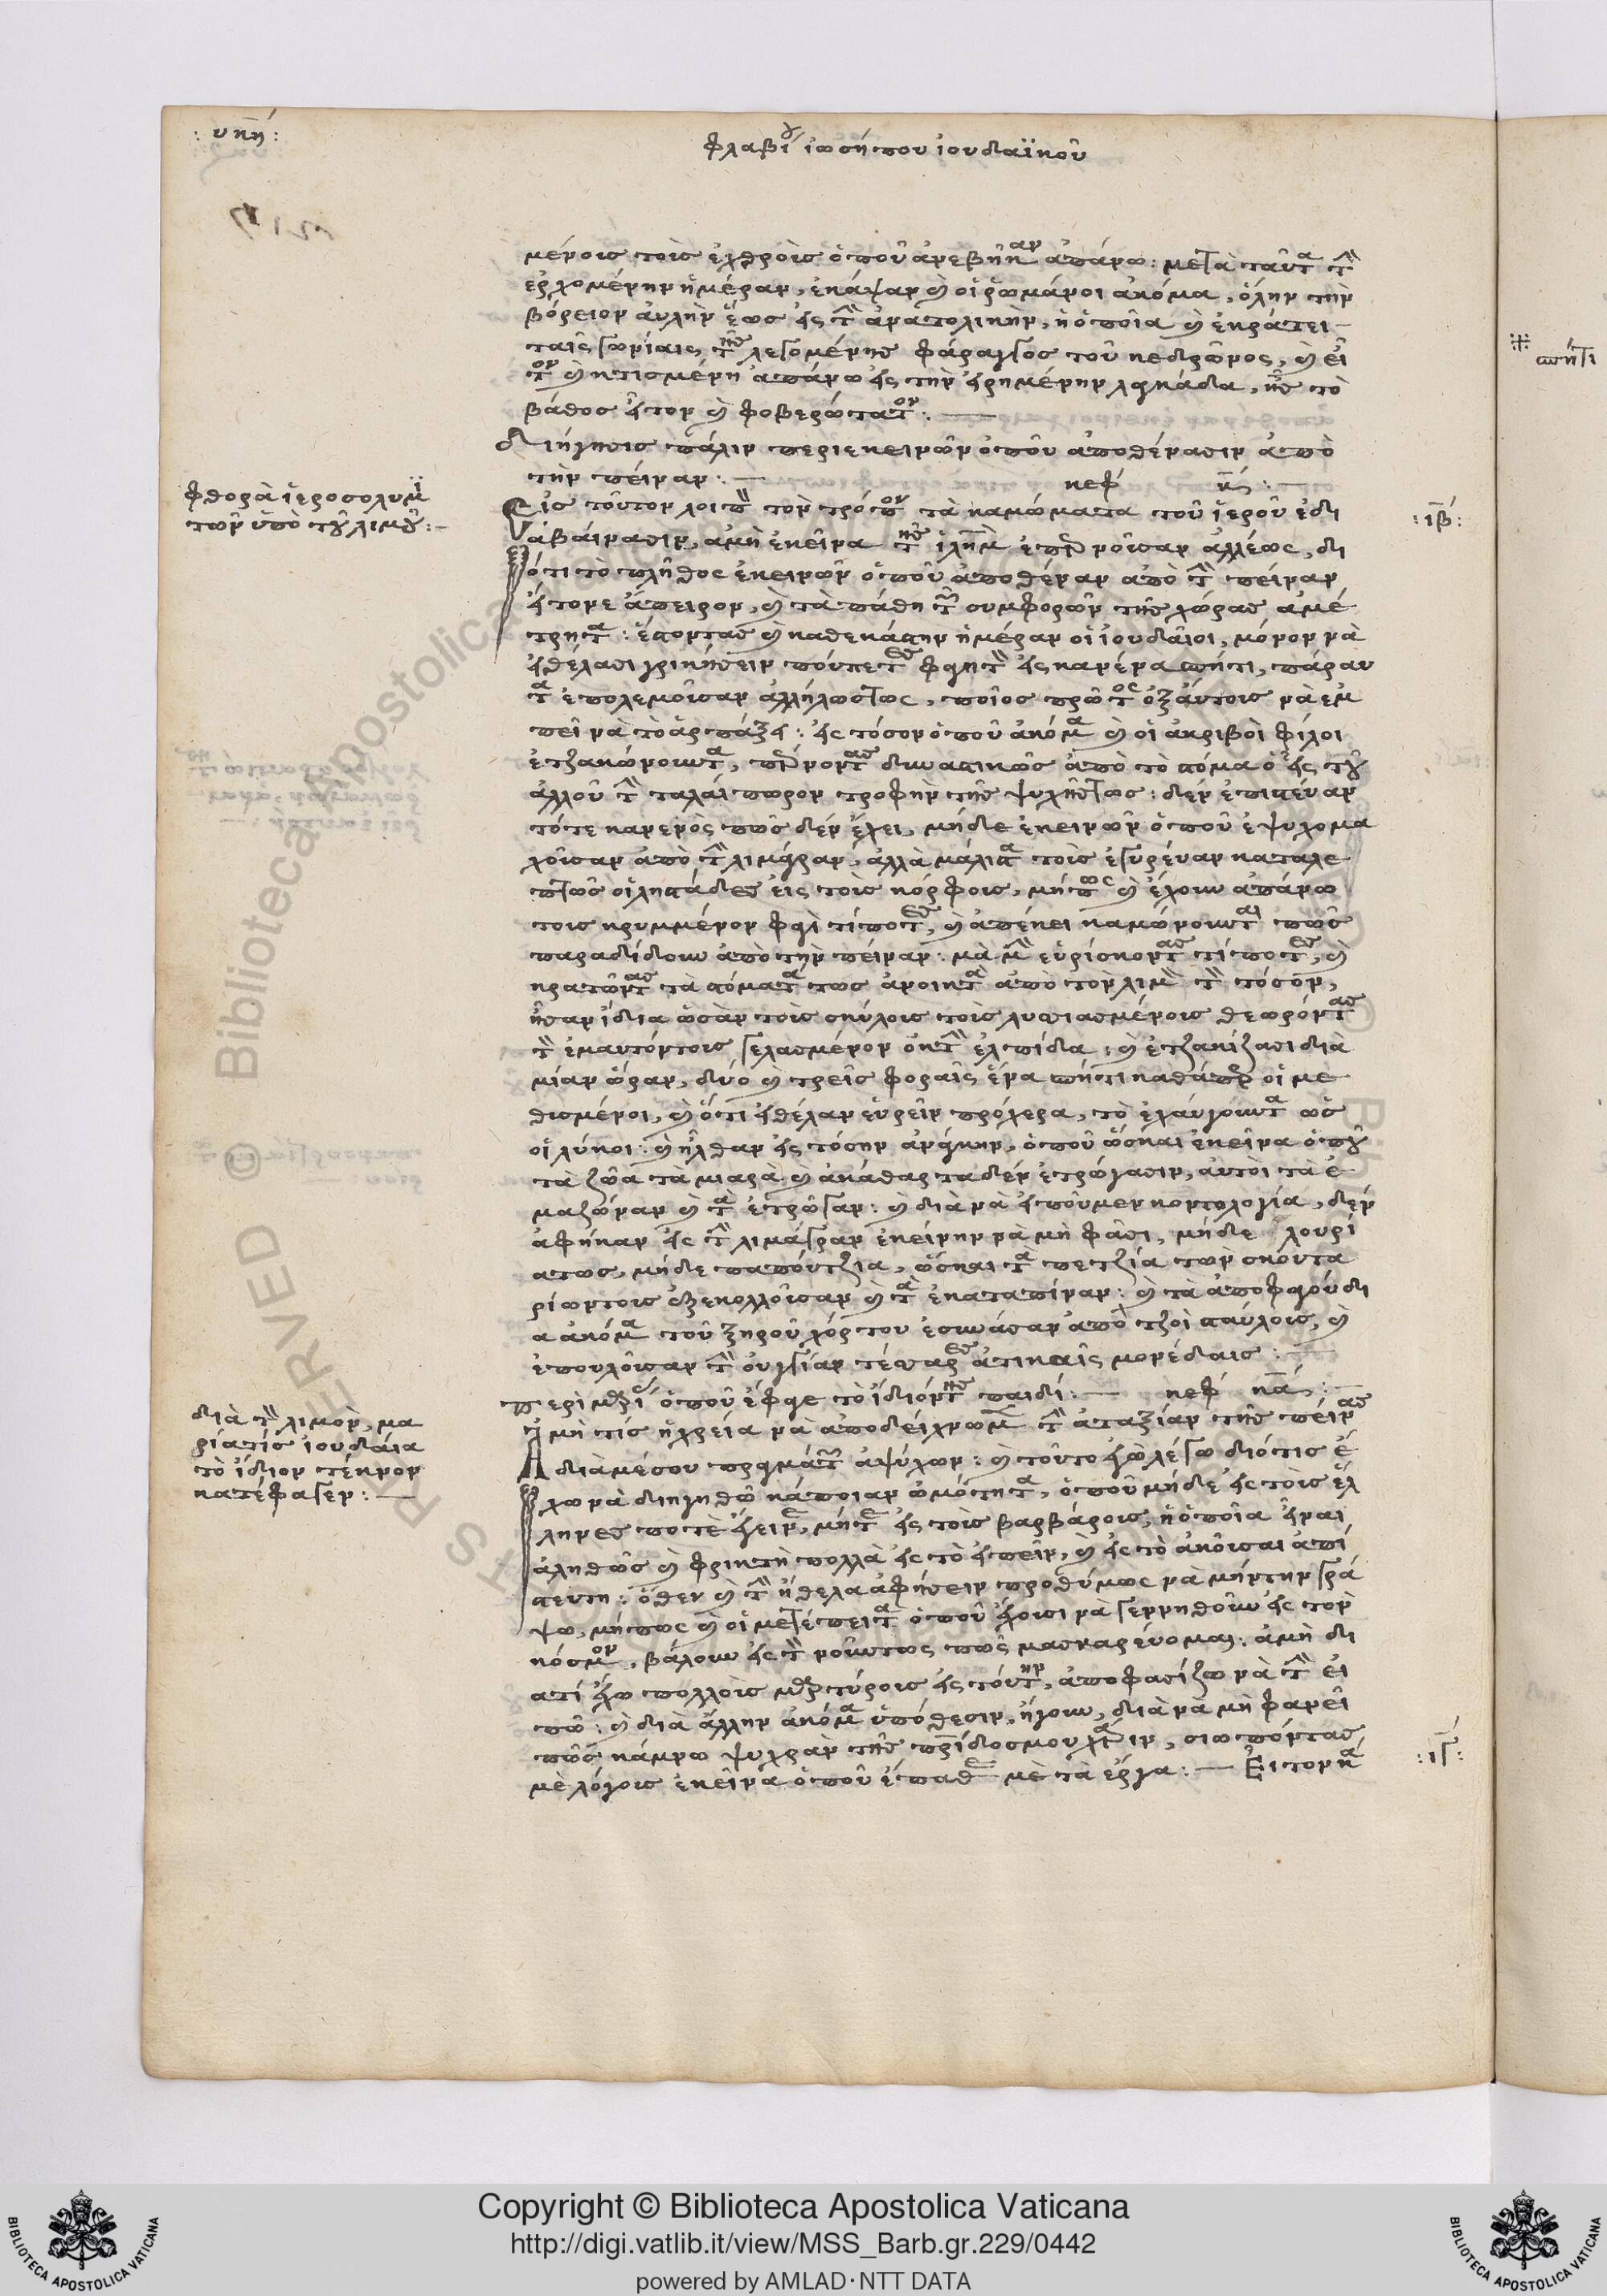 : υπη :
φλαβίου ἰωσήπου ἰουδαϊκοῦ
μένοις τοὶς ἐχθροὶς ὁποῦ ἀνεβῆκαν ἀπάνω: μετὰ ταῦτα τὴν
ἐρχομένην ἡμέραν, ἐκάψαν καὶ οἱ ῥωμάνοι ἀκόμα, ὅλην τὴν
βόρειον αὐλὴν ἕως εἰς τὴν ἀνατολικὴν, ἡ ὁποῖα καὶ ἐκράτει
ταῖς γωνίαις τῆς λεγομένης φάραγγος τοῦ κεδρῶνος, καὶ εἶ
τον καὶ κτισμένη ἀπάνω εἰς τὴν
βάθος εἶτον καὶ φοβερώτατον:
διήγησις πάλιν περὶ ἐκεινῶν ὁποῦ ἀποθένασιν ἀπὸ
τὴν πείναν: κεφ κ:
φθορὰ ἱεροσολυμι
τῶν ὑπὸ τοῦ λιμοῦ:
Εἰς τοῦτον λοιπὸν τὸν τρόπον τὰ καμώματα τοῦ ἱεροῦ ἐδι
: ιβ :
άβαίνασιν, ἀμὴ ἐκεῖνα τῆς ἱλημ ἐπερνοῖσαν ἀλλέως, δι
ότι τὸ πλῆθος ἐκεινῶν ὁποῦ ἀποθέναν ἀπὸ τὴν πείναν
εἴτονε ἄπειρον, καὶ τὰ πάθη τῶν συμφορῶν τῆς χώρας ἀμέ
τρητα: ἔστοντας καὶ καθεκάστην ἡμέραν οἱ ἰουδαῖοι, μόνον νὰ
εἰθέλασι γρικήσειν πούπετες φαγητὸν εἰς κανένα σπήτι, πάραυ
τα ἐπολεμοῖσαν ἀλλήλωστως, ποῖος πρῶτος ἐξαύτοις νὰ ἐμ
πεῖ νὰ τὸ ἁρπάξει: εἰς τόσον ὁποῦ ἀκόμα καὶ οἱ ἀκριβοὶ φίλοι
ἐτζακώνουντα, περνοντας δυναστικῶς ἀπὸ τὸ στόμα ὁ εἷς τοῦ
ἀλλοῦ τὴν ταλαίπωρον τροφὴν τῆς ψυχῆςτως: δὲν ἐπιστεύαν
τότε κανενὸς πῶς δὲν ἔχει, μήδε ἐκεινῶν ὁποῦ ἐψυχομα
χοῖσαν ἀπὸ τὴν λιμάγραν, ἀλλὰ μάλιστα τοὶς ἐγυρέυαν καταλε
πτῶς οἱ ληστάδες εἰς τοὶς κόρφοις, μήπως καὶ ἔχουν ἀπάνω
τοις κρυμμένον φαγὶ τίποτες, καὶ ἀπέκει καμώνουνται πῶς
παραδίδουν ἀπὸ τὴν πείναν: μὰ μὴν εὑρίσκοντας τίποτες, καὶ
κρατῶντας τὰ στόματα τως ἀνοικτὰ ἀπὸ τὸν λιμὸν τὸν τόσον,
ἦσαν ἴδια ὡσὰν τοὶς σκύλοις τοὶς λυσσιασμένοις θεωρόντας
τὸν ἐμαυτόντοις γελασμένον ἐκ τὴν ἐλπίδα: καὶ ἐτζακίζασι διὰ
μίαν ὥραν, δύο καὶ τρεῖς φοραῖς ἕνα σπήτι καθάπερ οἱ με
θυσμένοι, καὶ ὅτι εἰθέλαν εὑρεῖν πρόχερα, τὸ ἐχαύγουντα ὡς
οἱ λύκοι: καὶ ἦλθαν εἰς τόσην ἀνάγκην, ὁποῦ ὥσκαι ἐκεῖνα ὁποῦ
τὰ ζῶα τὰ μιαρὰ καὶ ἀκάθαρτα δὲν ἐτρώγασιν, αὐτοὶ τὰ ἐ
μαζώναν καὶ τὰ ἐτρῶγαν: καὶ διὰ νὰ εἰποῦμεν κοντολογία, δὲν
ἀφήκαν εἰς τὴν λιμάγραν ἐκείνην νὰ μὴ φᾶσι, μήδε λουρί
ατως, μήδε παπούντζια, ὥσκαι τὰ πετζία τῶν σκουτα
ρίωντοις ἐξεκολλοῖσαν καὶ τὰ ἐκαταπίναν: καὶ τὰ ἀποφαγούδι
α ἀκόμα τοῦ ξηροῦ χόρτου ἐσυνάσαν ἀπὸ τζοὶ σταύλοις, καὶ
ἐπουλοῖσαν τὴν οὐγγίαν τέσσαρες ἀτικαῖς μονέδαις:
Περὶ μητρὶ ὁποῦ ἔφαε τὸ ἰδιόντης παιδί: κεφ κα:
διὰ τὸν λιμὸν, μα
ρίατίς ἰουδάια
τὸ ἴδιον τέκνον
κατέφαγεν:
Ἀμὴ τίς ἡ χρεία νὰ ἀποδείχνωμεν τὴν ἀταξίαν τῆς πείνας
διὰ μέσου πραγμάτων ἀψύχων: καὶ τοῦτο ἐγὼ λέγω διότις ἔ
χω νὰ διηγηθῶ κάποιαν ὠμότητα, ὁποῦ μήδε εἰς τοὶς ἕλ
ληνες ποτὲ ἔγεινε, μήτε εἰς τοὶς βαρβάροις, ἡ ὁποῖα εἶναι
ἀληθῶς καὶ φρικτὴ πολλὰ εἰς τὸ εἰπεῖν, καὶ εἰς τὸ ἀκοῖσαι ἀπί
στευτη: ὅθεν καὶ τὴν ἤθελα ἀφήσειν προθύμως νὰ μήντην γρά
ψω, μήπως καὶ οἱ μετέπειτα ὁποῦ ἔχοισι νὰ γεννηθοῦν εἰς τὸν
κόσμον, βάλουν εἰς τὸν νοῦντως πῶς μασκαρεύομαι: ἀμὴ δι
ατί ἔχω πολλοὶς μάρτύροις εἰς τούτην, ἀποφασίζω νὰ τὴν εἰ
πῶ: καὶ διὰ ἄλλην ἀκόμα ὑπόθεσιν, ἤγουν, διὰ νὰ μὴ φανεῖ
πῶς κάμνω ψυχρὰν τῆς πατρίδοσμου χάριν, σιωπόντας
: ιγ :
μὲ λόγοις ἐκεῖνα ὁποῦ ἔπαθε μὲ τὰ ἔργα: Εἶτον κα
σπήτι
Copyright © Biblioteca Apostolica Vaticana
http://digi.vatlib.it/view/MSS_Barb.gr.229/0442
powered by AMLAD·NTT DATA
BIBLIOTECA APOSTOLICA VATICANA
BIBLIOTECA APOSTOLICA VATICANA